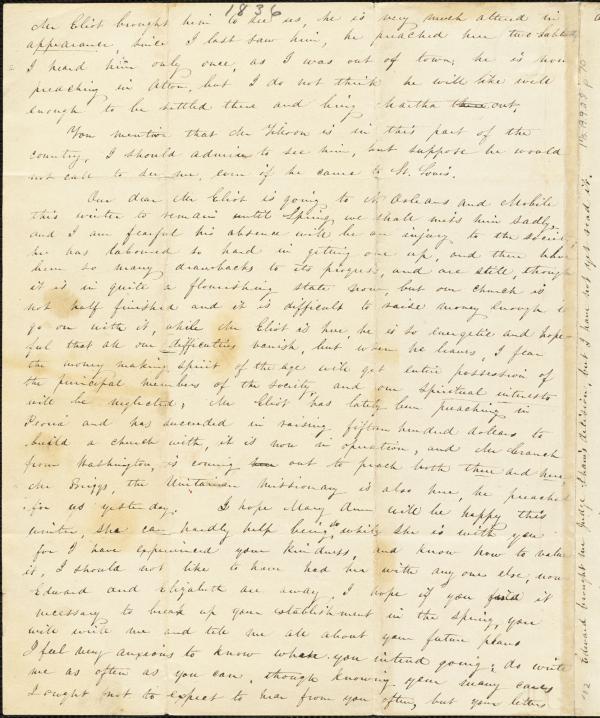 1836
Mr Eliot brought him to see us, he is very much altered in
appearance, since I last saw him, he preached here two sabbaths
I heard him only once, as I was out of town; he is now
preaching in Alton, but I do not think he will like well
enough to be settled there and bring Martha out.
You mention that Mr is in this part of the
country, I should admire to see him, but suppose he would
not call to see me, even if he came to St. Louis.
Our dear Mr Eliot is going to N Orleans and Mobile
this winter to remain until Spring, we shall miss him sadly,
and I am fearful his absence will be an injury to the society,
he has laboured so hard in getting one up, and there have
been so many drawbacks to its progress, and are still, though
it is in quite a flourishing state now, but our church is
not half finished and it is difficult to raise money enough to
go on with it, while Mr Eliot is here he is so energetic and hope-
ful that all our difficulties vanish, but when he leaves, I fear
the money making spirit of the age will get entire possession of
the principal members of the society, and our spiritual interests
will be neglected; Mr Eliot has lately been preaching in
Peoria and has succeeded in raising fifteen hundred dollars to
build a church with, it is now in operation, and Mr Cranch
from Washington, is coming out to preach both there and here
Mr Briggs, the Unitarian Missionary is also here, he preached
for us yesterday. I hope Mary Ann will be happy this
winter, she can hardly help being so while she is with you
for I have experienced your kindness, and know how to value
it, I should not like to have had her with any one else, now
Edward and Elizabeth are away. I hope if you find it
necessary to break up your establishment in the spring, you
will write me and tell me all about your future plans
I feel very anxious to know where you intend going; do write
me as often as you can, though knowing your many cares
I ought not to expect to hear from you often, but your letters
Edward brought me Judge Shaw's decision, but I have not yet read it.
Ms.A.9.2 p. 70